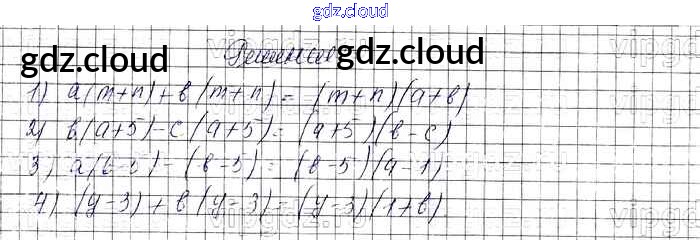 gdz.cloud
gdz.cloud gdz.cloud
Решение
1) a(m+n)+в(m+n)=(m+n)(a+в)
2) в(a+5)-c(a+5)=(a+5)(в-c)
3) a(в-5)-(в-5)=(в-5)(a-1)
4) (y-3)+в(y-3)=(y-3)(1+в)